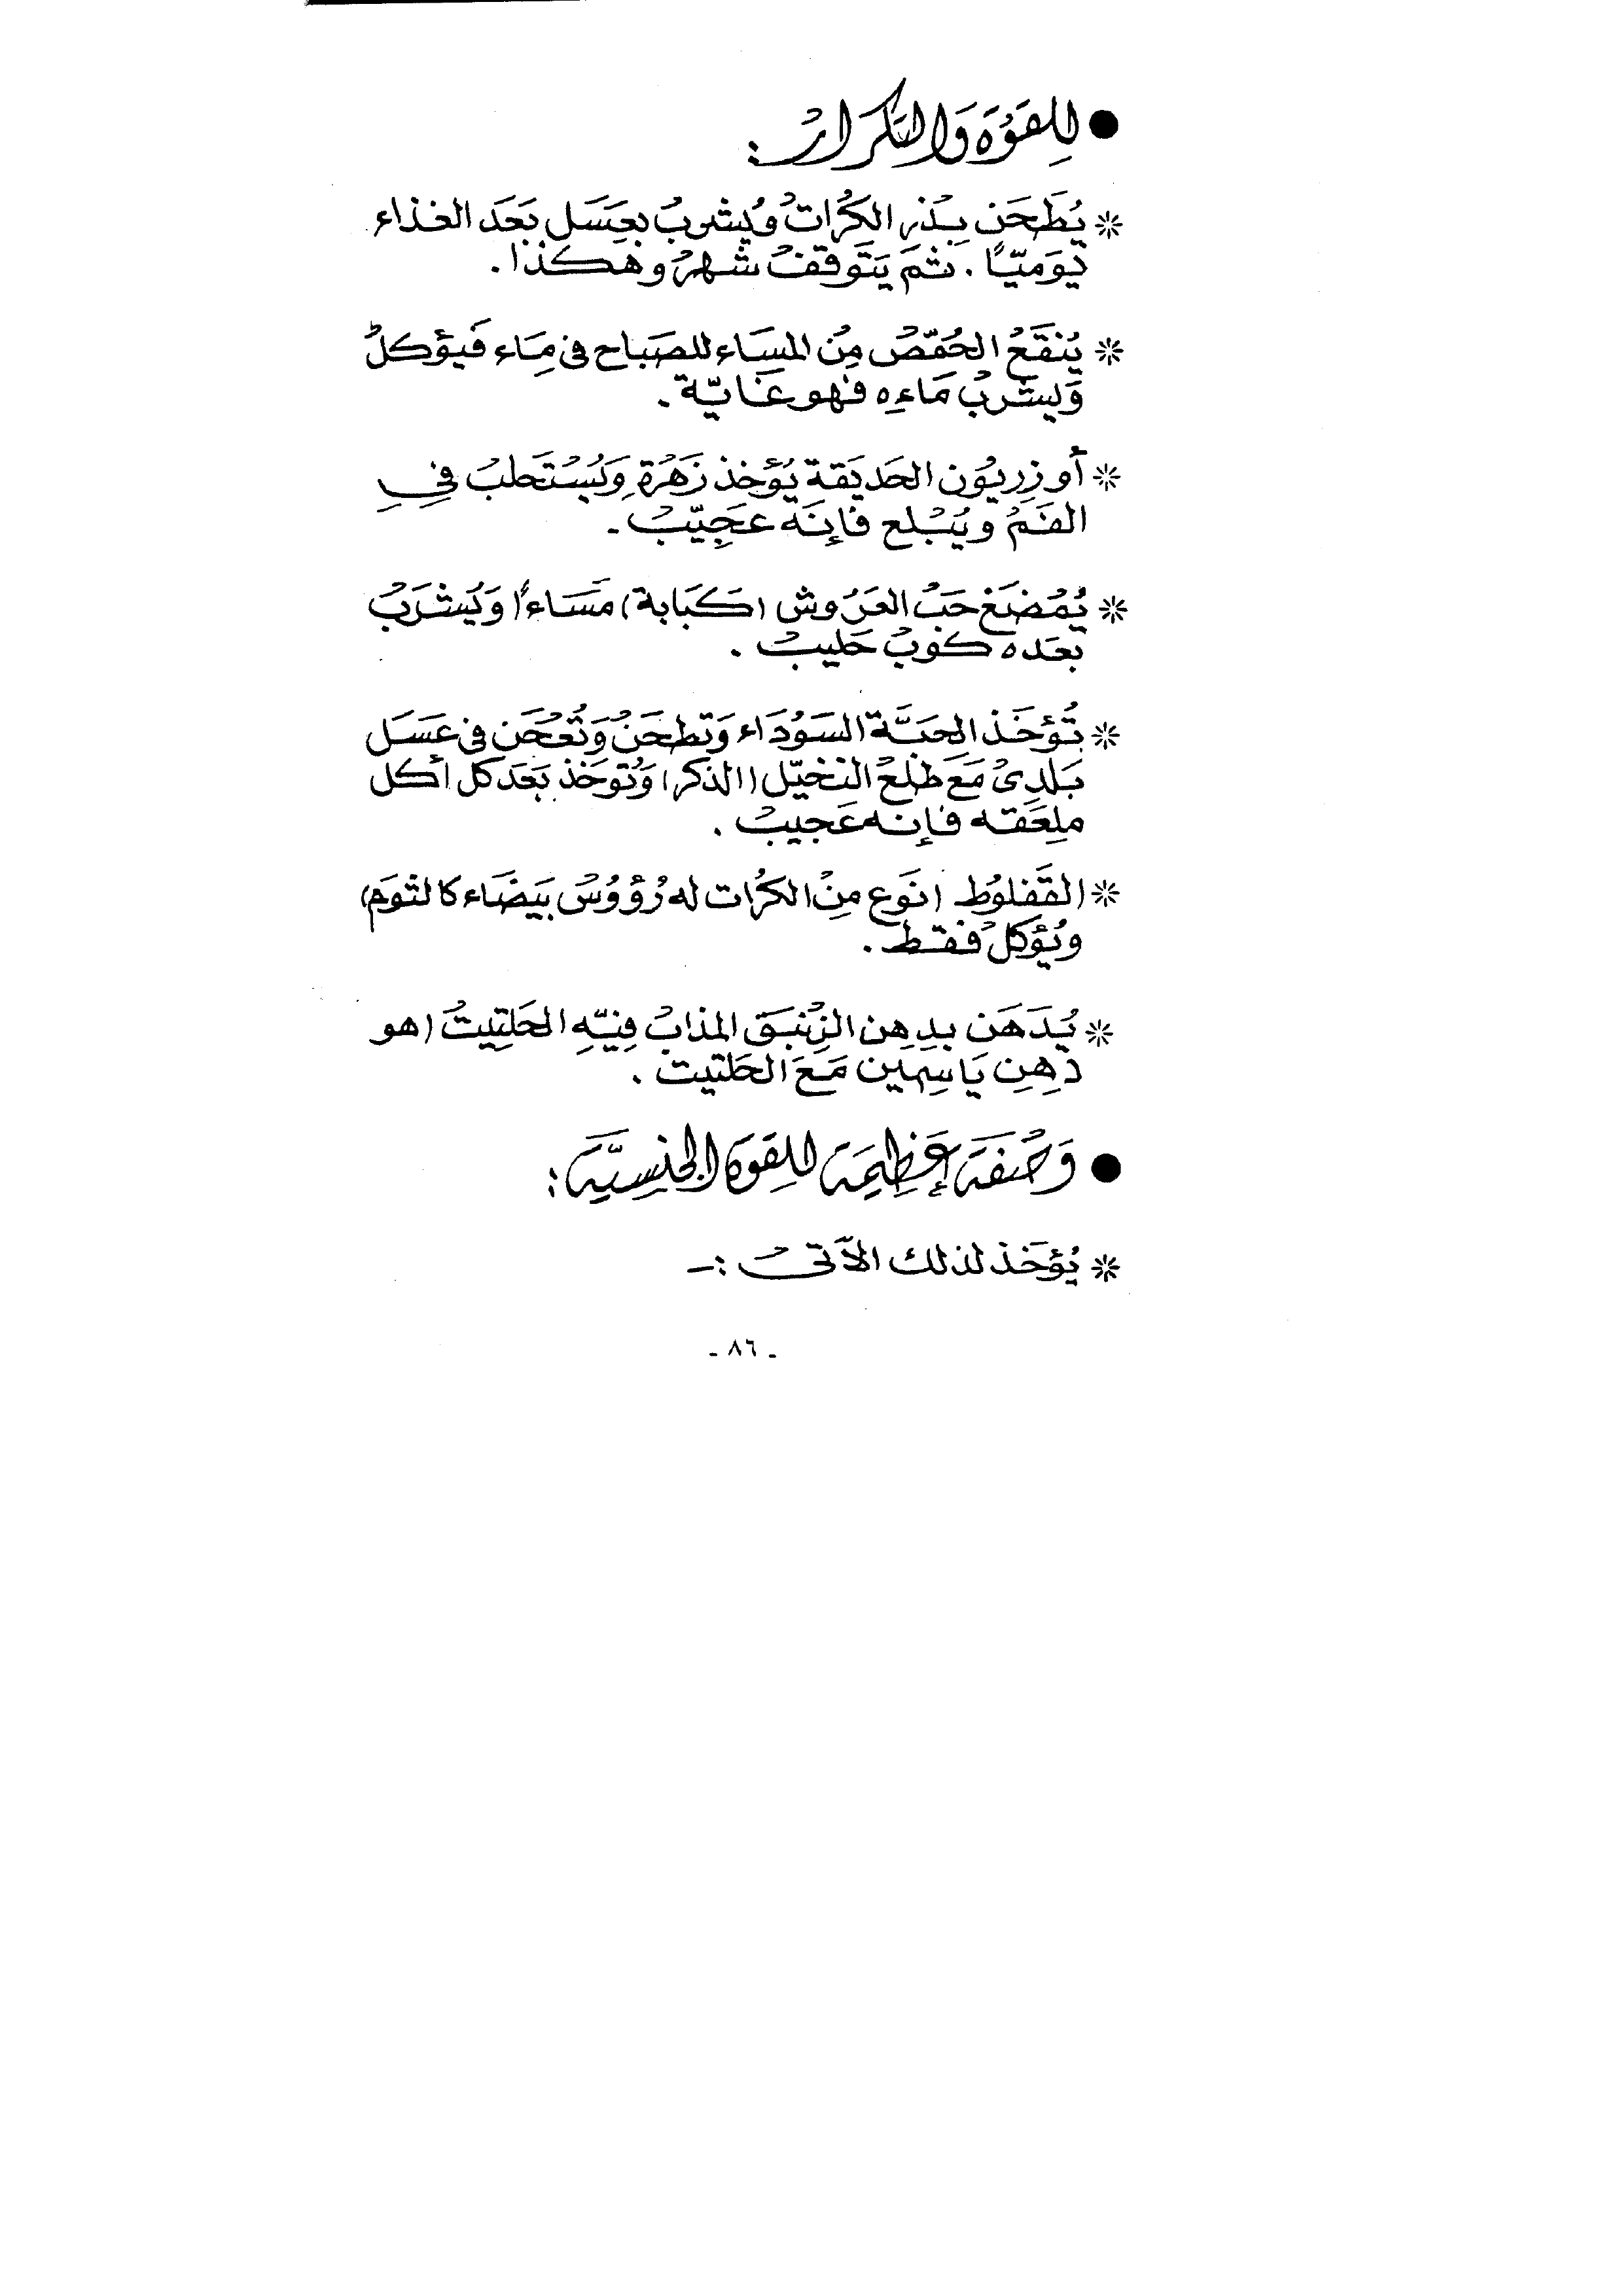 ● للقوة والتكرار :
* يُطحَن بذر الكرات ويُشرب بعسَل بَعَد الغذاء
يوَميّاً . ثم يَتَوقف شهر وهكذا .
* يُنقَع الحُمّص مِن المسَاء للصَباح فى مَاء فَيؤكل
وَيشرب مَاءه فهو غَايّة .
* أو زريوُن الحَديَقة يُؤخذ زَهْرة وَيُسْتَحلب فِي
الفَمُ ويُبْلع فإنَه عَجِيّبْ -
* يُمْضَغ حَبُ العَرُوش (كَبَابة) مَسَاءً وَيُشرَبْ
بعَده كوبْ حَليبْ .
* تُؤخَذ الحبَّة السَوُدَاء وَتطحَنْ وَتُعْجَن فى عَسَل
بَلدِىْ مَعَ طَلعْ النخيّل (الذكر) وَتُوخَذ بَعَد كل أكل
ملِعَقه فإنه عَجيبْ .
* القَفلوُط (نَوَع مِنْ الكرُات له رُؤوُسْ بَيضَاء كالثوَم)
ويُؤكلْ فقط .
* يُدَهَن بدِهِن الزنبَق المذابْ فِيّهِ الحَلتِيتْ (هو
دهِنِ يَاسِمين مَعَ الحَلتيت .
● وَصْفَة عَظِيمَة للِقوة الجنسِيَّة :
* يُؤخَذ لذلك الآتىْ :-
- ٨٦ -